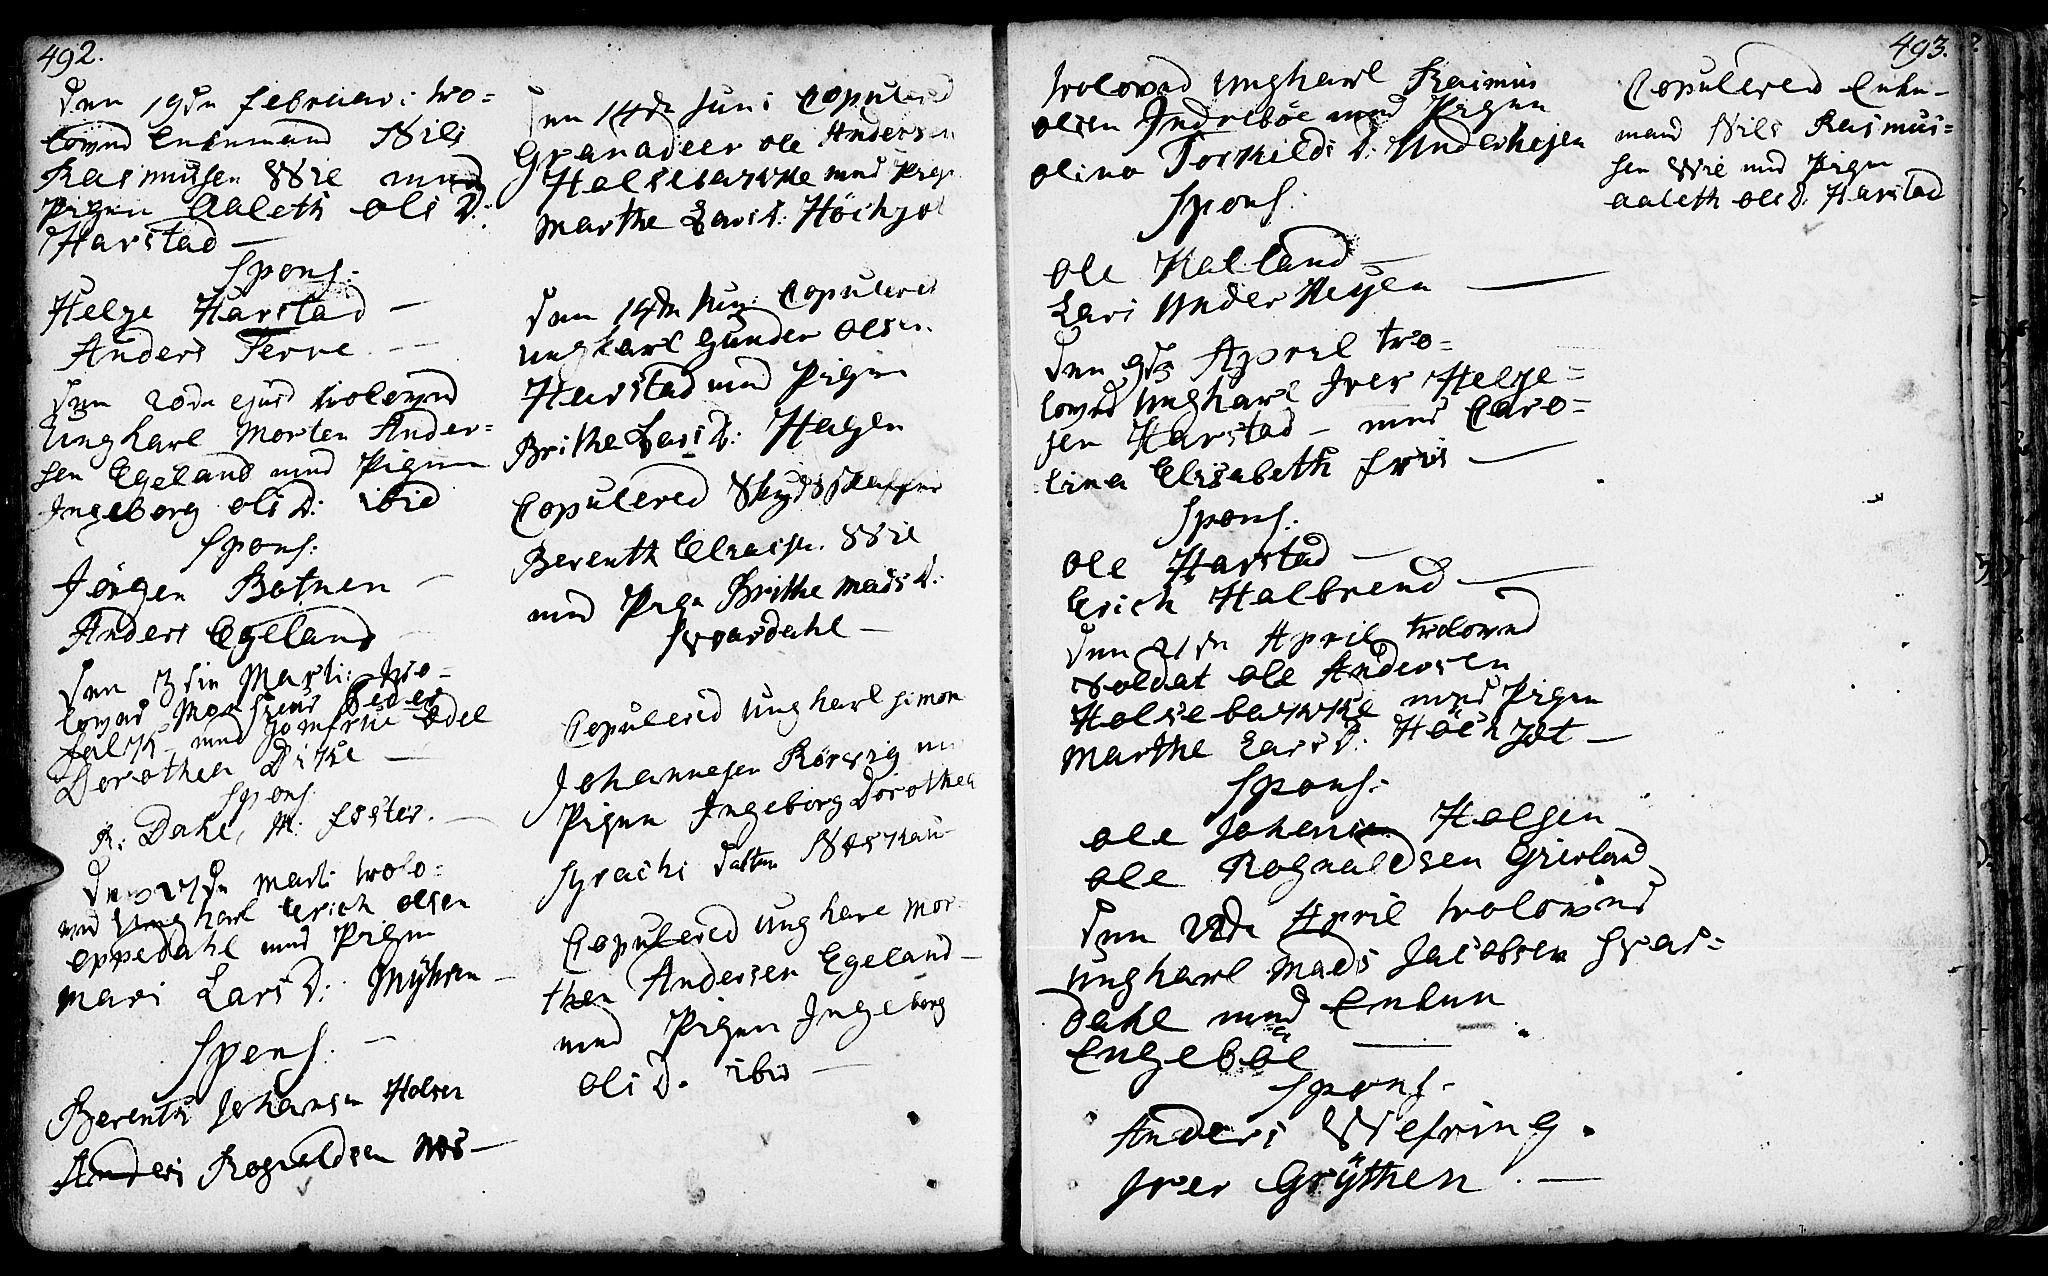 492.
Den 19de februari tro-
lovet Enkemand Nils
Rasmussen Wie med
Pigen Aaleth Ols D:
Harstad
Spons:
Helge Harstad
Anders Ferre
Den 20de ejusd trolovet
Ungkarl Morten Ander-
sen Egeland med Pigen
Ingeborg Ols D: ibid
Spons:
Jörgen Botnen
Anders Egeland
Den 3die Marti: tro-
lovet Monsieur Peder
Falck med Jomfrue Edel
Dorothea Ditke
Spons
R: Dahl, M: Foster.
Den 27de Marti trolo-
vet Ungkarl Erich Olsen
Oppedahl med Pigen
Mari Lars D: Myhren
Spons:
Berenth Johansen Holsen
Anders Rognaldsen Nes
Den 14de Juni Copulered
Granadeer Ole Andersen
Holsebacke med Pigen
Marthe Lars D: Höihjol
Den 14de Juni Copulered
ungkarl Gunder Olsen
Harstad med Pigen
Brithe Lars D: Hagen
Copulered Skydsskaffer
Berenth Eliasen Wie
med Pigen Brithe Mads D:
Svardahl
Copulered Ungkarl Simon
Johannesen Rörvig
Pigen Ingeborg Dorothea
Copulered Ungkarl Mor-
then Andersen Egeland
med Pigen Ingeborg
Ols D. ibid
493.
trolovet Ungkarl Rasmus
Olsen Indreböe med Pigen
Olina Torkilds D: Underhejen
Spons:
Ole Kalland
Lars Underhejen
Den 9de April tro-
lovet Ungkarl Iver Helge-
sen Harstad - med Caro-
lina Elisabeth Friis
Spons:
Ole Harstad
Erich Halbrend
Den 21de April trolovet
Soldat Ole Andersen
Holsebacke med Pigen
Marthe Lars D: Höihjol
Spons:
Ole Johansen Holsen
Ole Rognaldsen Grimland
Den 22de April trolovet
Ungkarl Mads Jacobsen Svar-
dahl med Enken
Engeböe
Spons:
Anders Wefring.
Iver Grÿthen.
Copulered Enke-
mand Nils Rasmus-
sen Wie med Pigen
Aaleth Ols D: Harstad